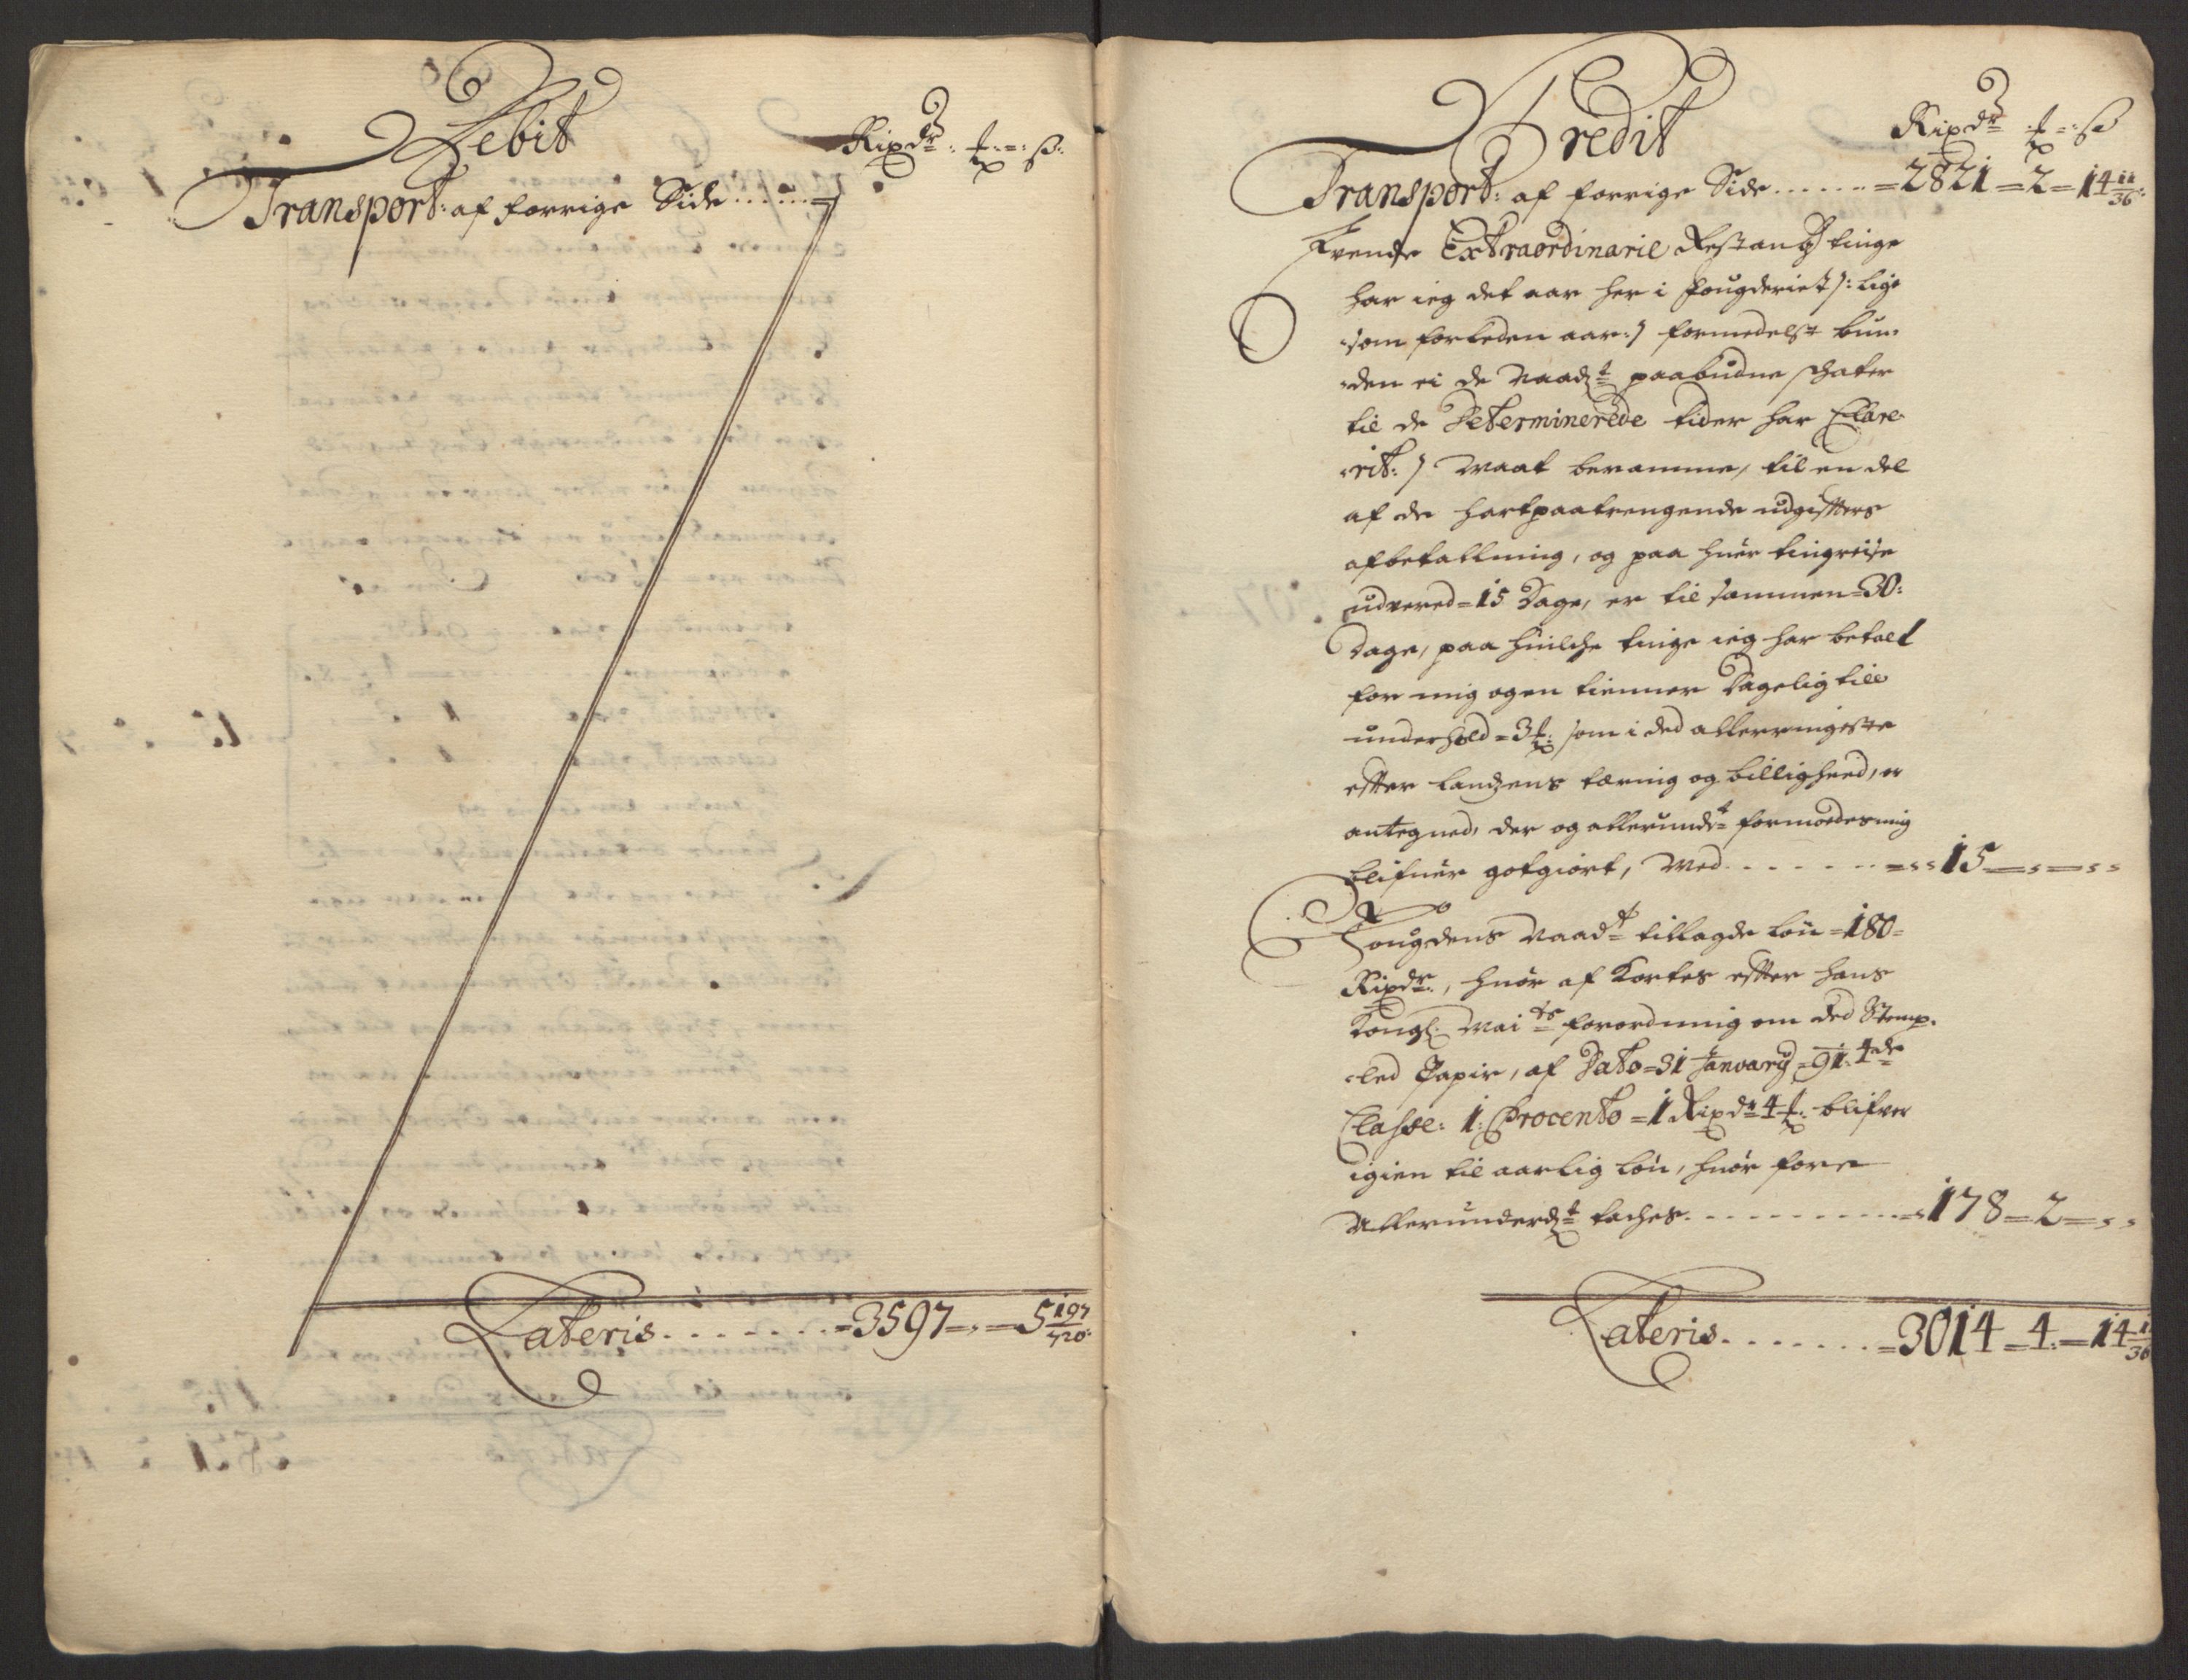 Debit
Ripdr: ƒ: =: ß:
Transport: af forrige Side ......=
Lateris.......=3597=,=5 197/720:
Credit
Ripdr ƒ =: ß
Transport: af forrige Side ......=2821=2=14 11/36:
Tvende Extraordinarie Restantz tinge
har ieg det aar her i fougderiet /: lige
som forleden aar:/ formedelst bun-
-den ei de Naadt paabudne schater
til de Determinerede tider har Clare-
-rit:/ maat beramme, til en del
af de hartpaatrengende udgiffters
afbetallning, og paa huer tingreise
udvered=15 Dage, er til sammen=30:
Dage, paa huilche tinge ieg har betalt
for mig og en tienner Dagelig till
underhold=3ƒ: som i ded allerringeste
effter landzens tæring og billigheed, er
antegned, der og allerundt formoedes mig
blifuer gotgiort, med.......=,,15=,=,,
Fougdens Naadt tillagde løn=180=
Ripdr:, huor af kortes effter hans
Kongl: Maits forordning om ded Stemp-
-led Papir, af Dato=31 January=91: 4de
Classe: 1: Procento=1 Ripdr 4ƒ: blifver
igien til aarlig løn, huor fore
Allerunderdt taches...........=178=2=,,
Lateris........=3014=4:=14 11/36